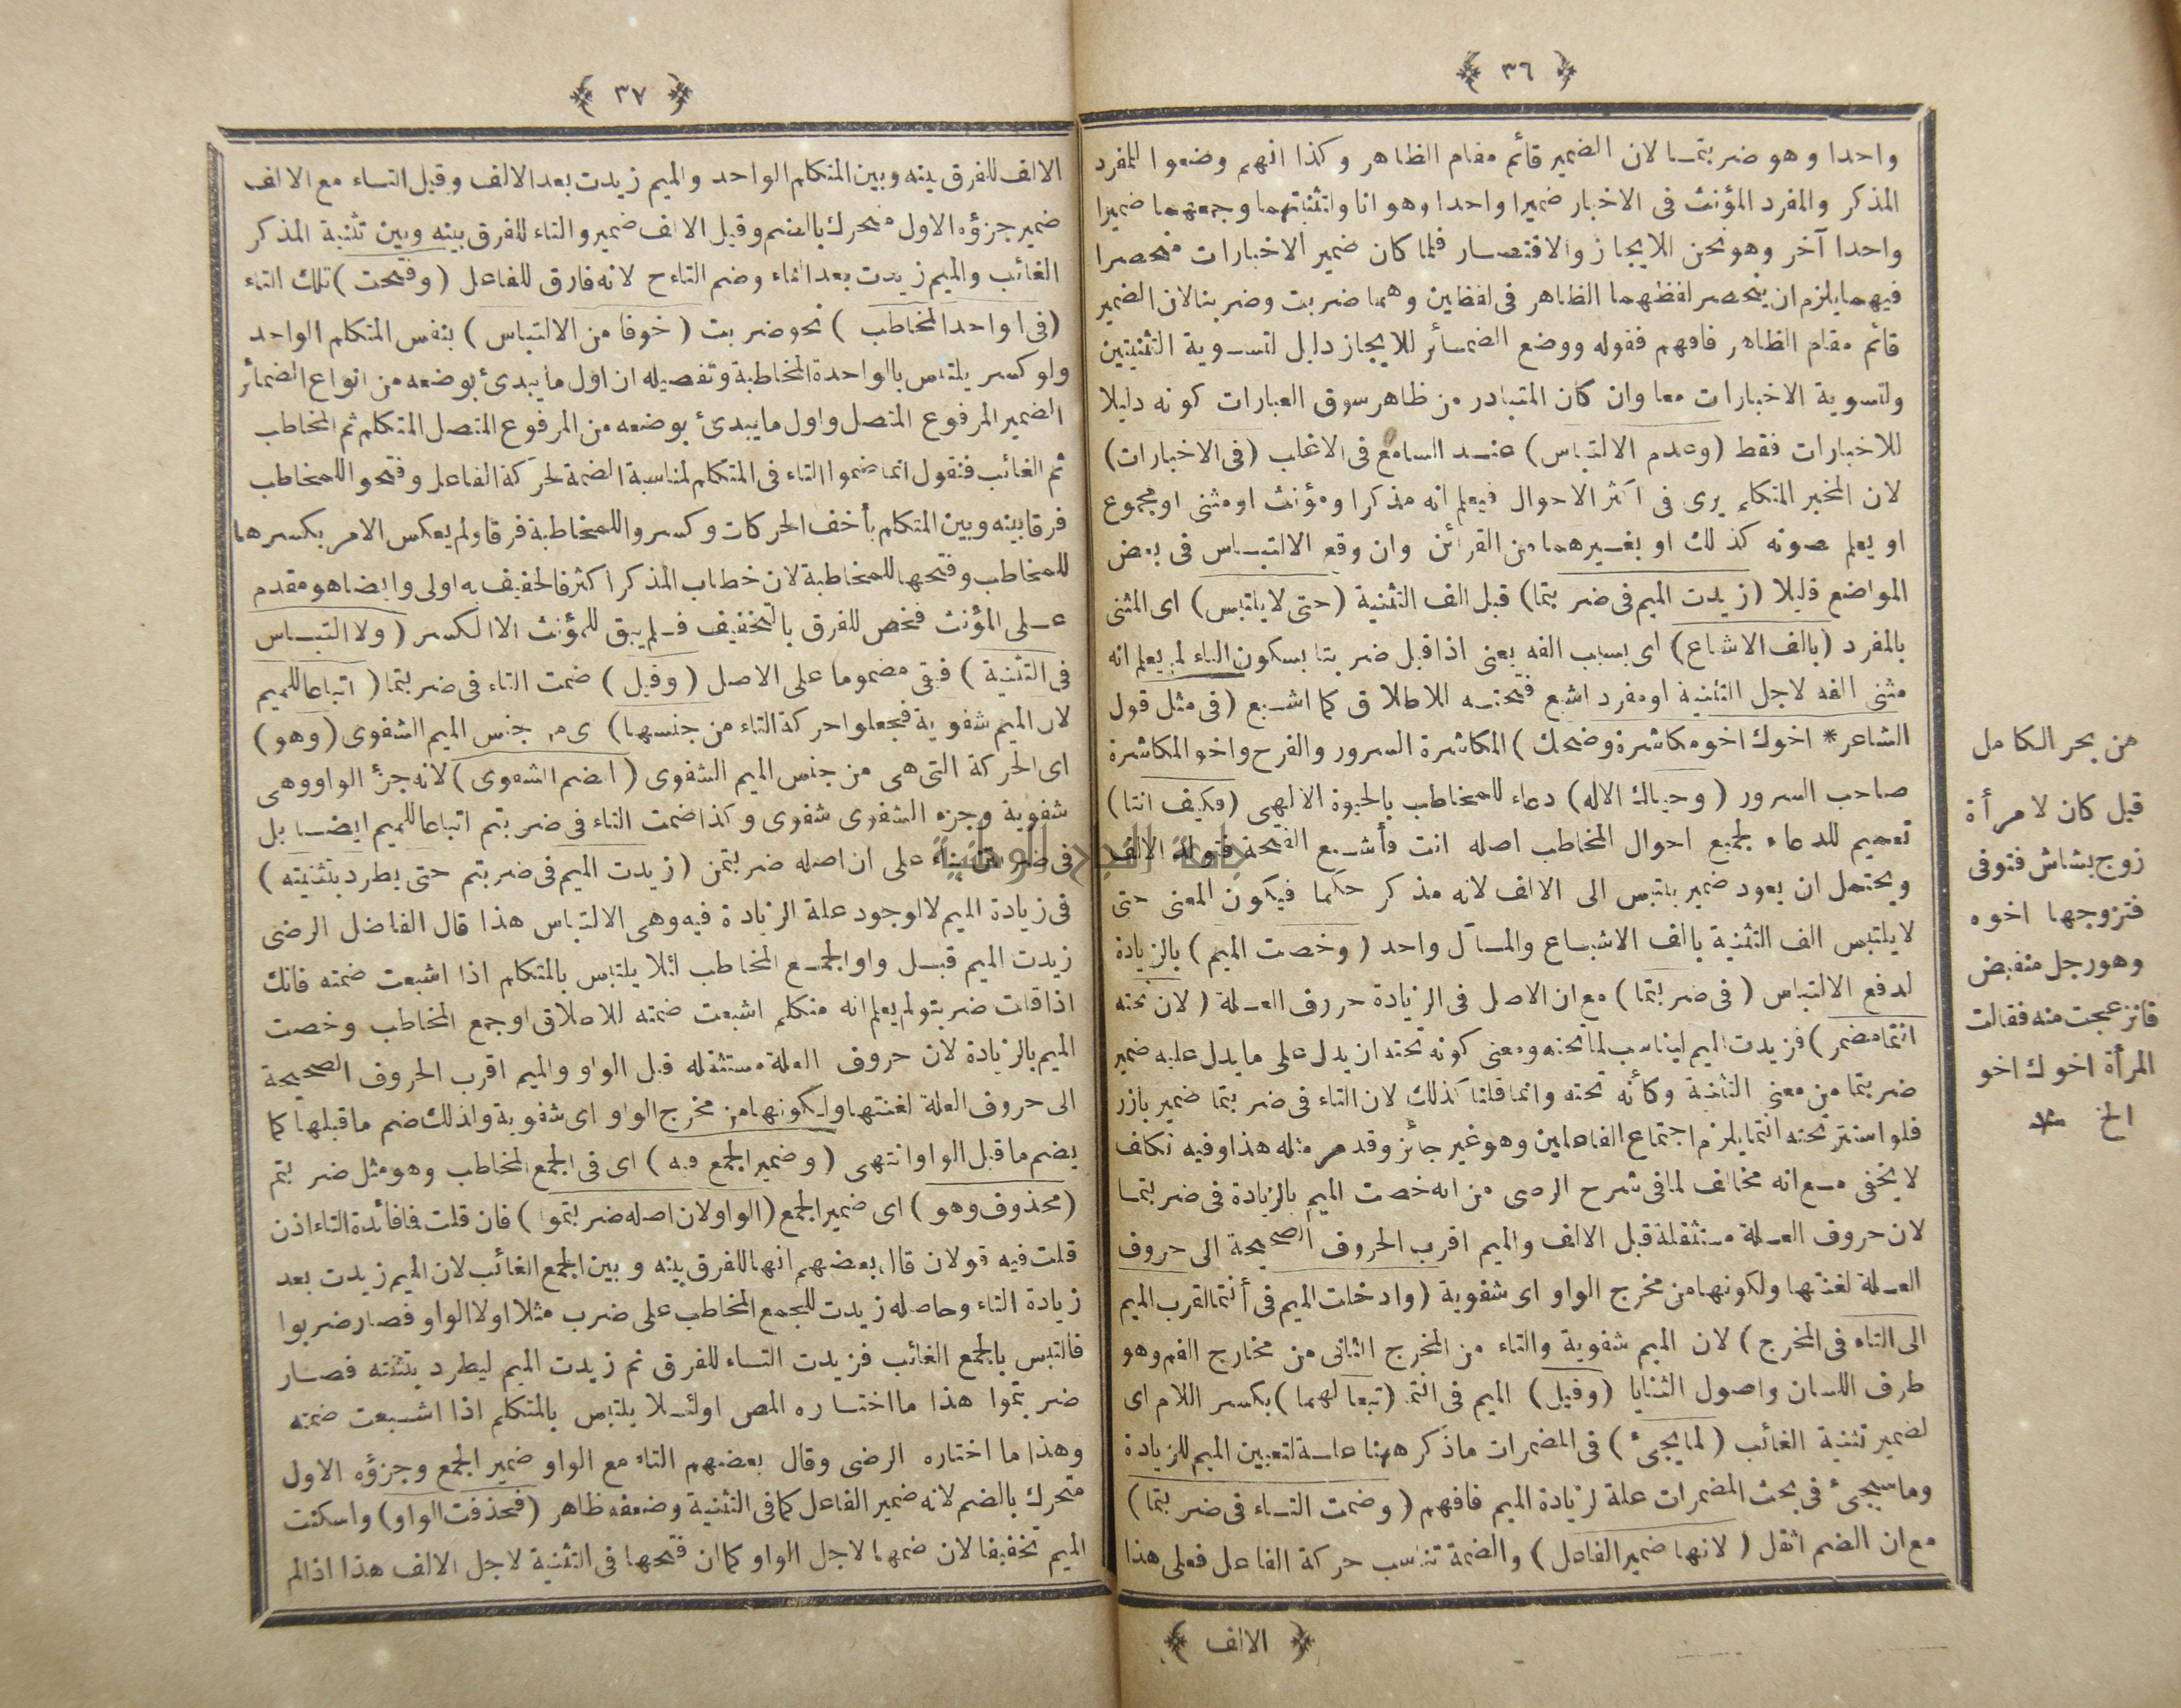 ﴿ ٣٦ ﴾
واحدا وهو ضربتما لان الضمير قائم مقام الظاهر وكذا انهم وضعوا للمفرد
المذكر والمفرد المؤنث فى الاخبار ضميرا واحدا وهو انا ولتثنيتهما وجمعهما ضميرا
واحدا آخر وهو نحن للايجاز والاقتصار فلما كان ضمير الاخبارات منحصرا
فيهما يلزم ان ينحصر لفظهما الظاهر فى لفظين وهما ضربت وضربنا لان الضمير
قائم مقام الظاهر فافهم فقوله ووضع الضمائر للايجاز دليل لتسوية التثنيتين
ولتسوية الاخبارات معا وان كان المتبادر من ظاهر سوق العبارات كونه دليلا
للاخبارات فقط (وعدم الالتباس) عند السامع فى الاغلب (فى الاخبارات)
لان المخبر المتكلم يرى فى اكثر الاحوال فيعلم انه مذكر او مؤنث او مثنى او مجموع
او يعلم صوته كذلك او بغيرهما من القرائن وان وقع الالتباس فى بعض
المواضع قليلا (زيدت الميم فى ضربتما) قبل الف التثنية (حتى لا يلتبس) اى المثنى
بالمفرد (بالف الاشباع) اى بسبب الفه يعنى اذا قيل ضربتا بسكون الباء لم يعلم انه
مثنى الفه لاجل التثنية او مفرد اشبع فتحته للاطلاق كما اشبع (فى مثل قول
الشاعر * اخوك اخو مكاشرة وضحك) المكاشرة السرور والفرح واخو المكاشرة
صاحب السرور (وحياك الاله) دعاء للمخاطب بالحيوة الالهى (فكيف انتا)
تعميم للدعاء لجميع احوال المخاطب اصله انت فأشبع الفتحة فتولد الالف
ويحتمل ان يعود ضمير يلتبس الى الالف لانه مذكر حكما فيكون المعنى حتى
لا يلتبس الف التثنية بالف الاشباع والمآل واحد (وخصت الميم) بالزيادة
لدفع الالتباس (فى ضربتما) مع ان الاصل فى الزيادة حروف العلة (لان تحته
انتما مضمر) فزيدت الميم ليناسب لما تحته ومعنى كونه تحته ان يدل على ما يدل عليه ضمير
ضربتما من معنى التثنية وكأنه تحته وانما قلنا كذلك لان التاء فى ضربتما ضمير بارز
فلو استتر تحته انتما يلزم اجتماع الفاعلين وهو غير جائز وقد مر مثله هذا وفيه تكلف
لا يخفى مع انه مخالف لما فى شرح الرضى من انه خصت الميم بالزيادة فى ضربتما
لان حروف العلة مستثقلة قبل الالف والميم اقرب الحروف الصحيحة الى حروف
العلة لغنتها ولكونها من مخرج الواو اى شفوية (وادخلت الميم فى أنتما لقرب الميم
الى التاء فى المخرج) لان الميم شفوية والتاء من المخرج الثانى من مخارج الفم وهو
طرف اللسان واصول الثنايا (وقيل) الميم فى انتما (تبعا لهما) بكسر اللام اى
لضمير تثنية الغائب (لما يجئ) فى المضمرات ما ذكر ههنا علة لتعيين الميم للزيادة
وما سيجئ فى بحث المضمرات علة لزيادة الميم فافهم (وضمت التاء فى ضربتما)
مع ان الضم اثقل (لانها ضمير الفاعل) والضمة تناسب حركة الفاعل فعلى هذا
﴿ الالف ﴾
من بحر الكامل
قيل كان لامرأة
زوج بشاش فتوفى
فتزوجها اخوه
وهو رجل منقبض
فانزعجت منه فقالت
المرأة اخوك اخو
الخ
﴿ ٣٧ ﴾
الالف للفرق بينه وبين المتكلم الواحد والميم زيدت بعد الالف وقيل التاء مع الالف
ضمير جزؤه الاول متحرك بالضم وقيل الالف ضمير والتاء للفرق بينه وبين تثنية المذكر
الغائب والميم زيدت بعد التاء وضم التاء ح لانه فارق للفاعل (وفتحت) تلك التاء
(فى الواحد المخاطب) نحو ضربت (خوفا من الالتباس) بنفس المتكلم الواحد
ولو كسر يلتبس بالواحدة المخاطبة وتفصيله ان اول ما يبدئ بوضعه من انواع الضمائر
الضمير المرفوع المتصل واول ما يبدئ بوضعه من المرفوع المتصل المتكلم ثم المخاطب
ثم الغائب فنقول انما ضموا التاء فى المتكلم لمناسبة الضمة لحركة الفاعل وفتحوا للمخاطب
فرقا بينه وبين المتكلم بأخف الحركات وكسروا للمخاطبة فرقا ولم يعكس الامر بكسرها
للمخاطب وفتحها للمخاطبة لان خطاب المذكر اكثر فالخفيف به اولى وايضا هو مقدم
على المؤنث فخص للفرق بالتخفيف فلم يبق للمؤنث الا الكسر (ولا التباس
فى التثنية) فبقى مضموما على الاصل (وقيل) ضمت التاء فى ضربتما (اتباعا للميم
لان الميم شفوية فجعلوا حركة التاء من جنسها) اى من جنس الميم الشفوى (وهو)
اى الحركة التى هى من جنس الميم الشفوى (الضم الشفوى) لانه جزؤ الواو وهى
شفوية وجزء الشفوى شفوى وكذا ضمت التاء فى ضربتم اتباعا للميم ايضا بل
فى ضربتن بناء على ان اصله ضربتمن (زيدت الميم فى ضربتم حتى يطرد بتثنيته)
فى زيادة الميم لا لوجود علة الزيادة فيه وهى الالتباس هذا قال الفاضل الرضى
زيدت الميم قبل واو الجمع المخاطب لئلا يلتبس بالمتكلم اذا اشبعت ضمته فانك
اذا قلت ضربتو لم يعلم انه متكلم اشبعت ضمته للاطلاق او جمع المخاطب وخصت
الميم بالزيادة لان حروف العلة مستثقلة قبل الواو والميم اقرب الحروف الصحيحة
الى حروف العلة لغنتها ولكونها من مخرج الواو اى شفوية ولذلك ضم ما قبلها كما
يضم ما قبل الواو انتهى (وضمير الجمع فيه) اى فى الجمع المخاطب وهو مثل ضربتم
(محذوف وهو) اى ضمير الجمع (الواو لان اصله ضربتموا) فان قلت فما فائدة التاء اذن
قلت فيه قولان قال بعضهم انها للفرق بينه وبين الجمع الغائب لان الميم زيدت بعد
زيادة التاء وحاصله زيدت للجمع المخاطب على ضرب مثلا اولا الواو فصار ضربوا
فالتبس بالجمع الغائب فزيدت التاء للفرق ثم زيدت الميم ليطرد بتثنيته فصار
ضربتموا هذا ما اختاره المص او لئلا يلتبس بالمتكلم اذا اشبعت ضمته
وهذا ما اختاره الرضى وقال بعضهم التاء مع الواو ضمير الجمع وجزؤه الاول
متحرك بالضم لانه ضمير الفاعل كما فى التثنية وضعفه ظاهر (فحذفت الواو) واسكنت
الميم تخفيفا لان ضمها لاجل الواو كما ان فتحها فى التثنية لاجل الالف هذا اذا لم